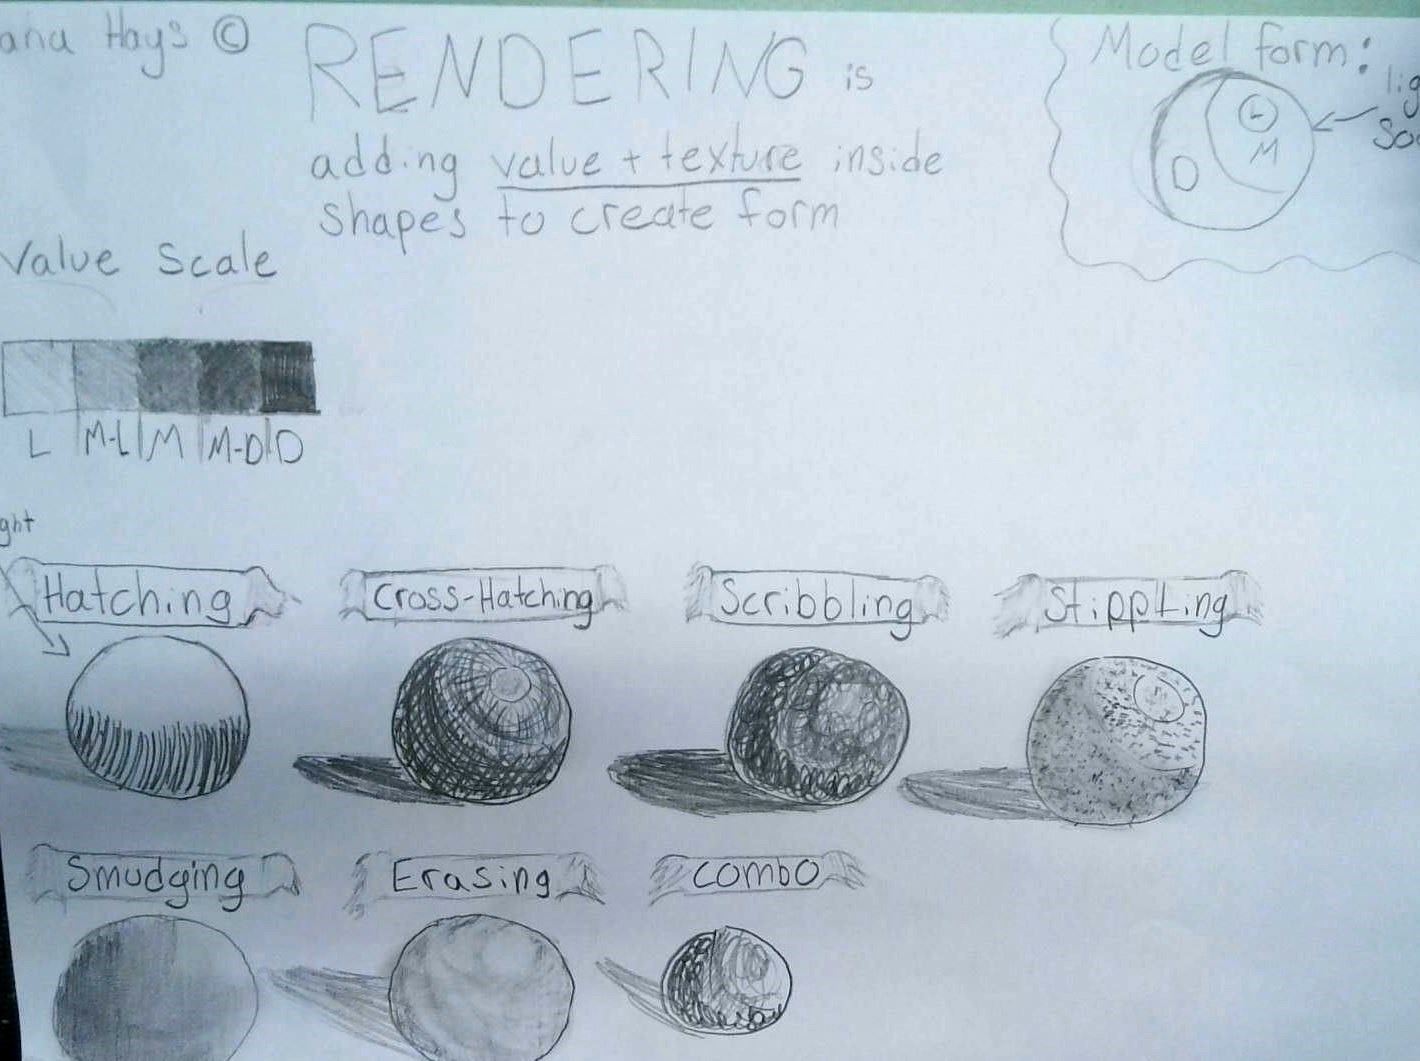 ana Hays ©
RENDERING is
adding value + texture inside
shapes to create form
Model form:
lig
So
L
M
D
Value Scale
L M-L M M-D D
ght
Hatching
Cross-Hatching
Scribbling
Stippling
Smudging
Erasing
combo